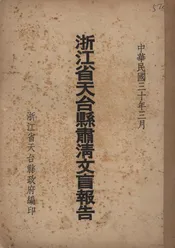 中華民國三十年三月
浙江省天台縣肅清文盲報告
浙江省天台縣政府編印